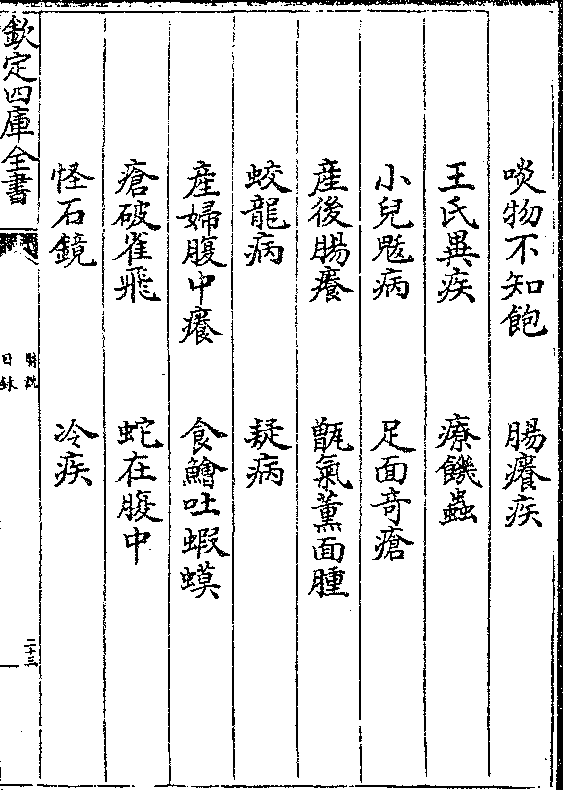 啖物不知飽 腸癢疾
王氏異疾 療饑蟲
小兒尫病 足面奇瘡
產後腸癢 甑氣薰面腫
蛟龍病 疑病
產婦腹中癢 食鱠吐蝦蟆
瘡破雀飛 蛇在腹中
怪石鏡 冷疾
欽定四庫全書
醫說
目録
二十三